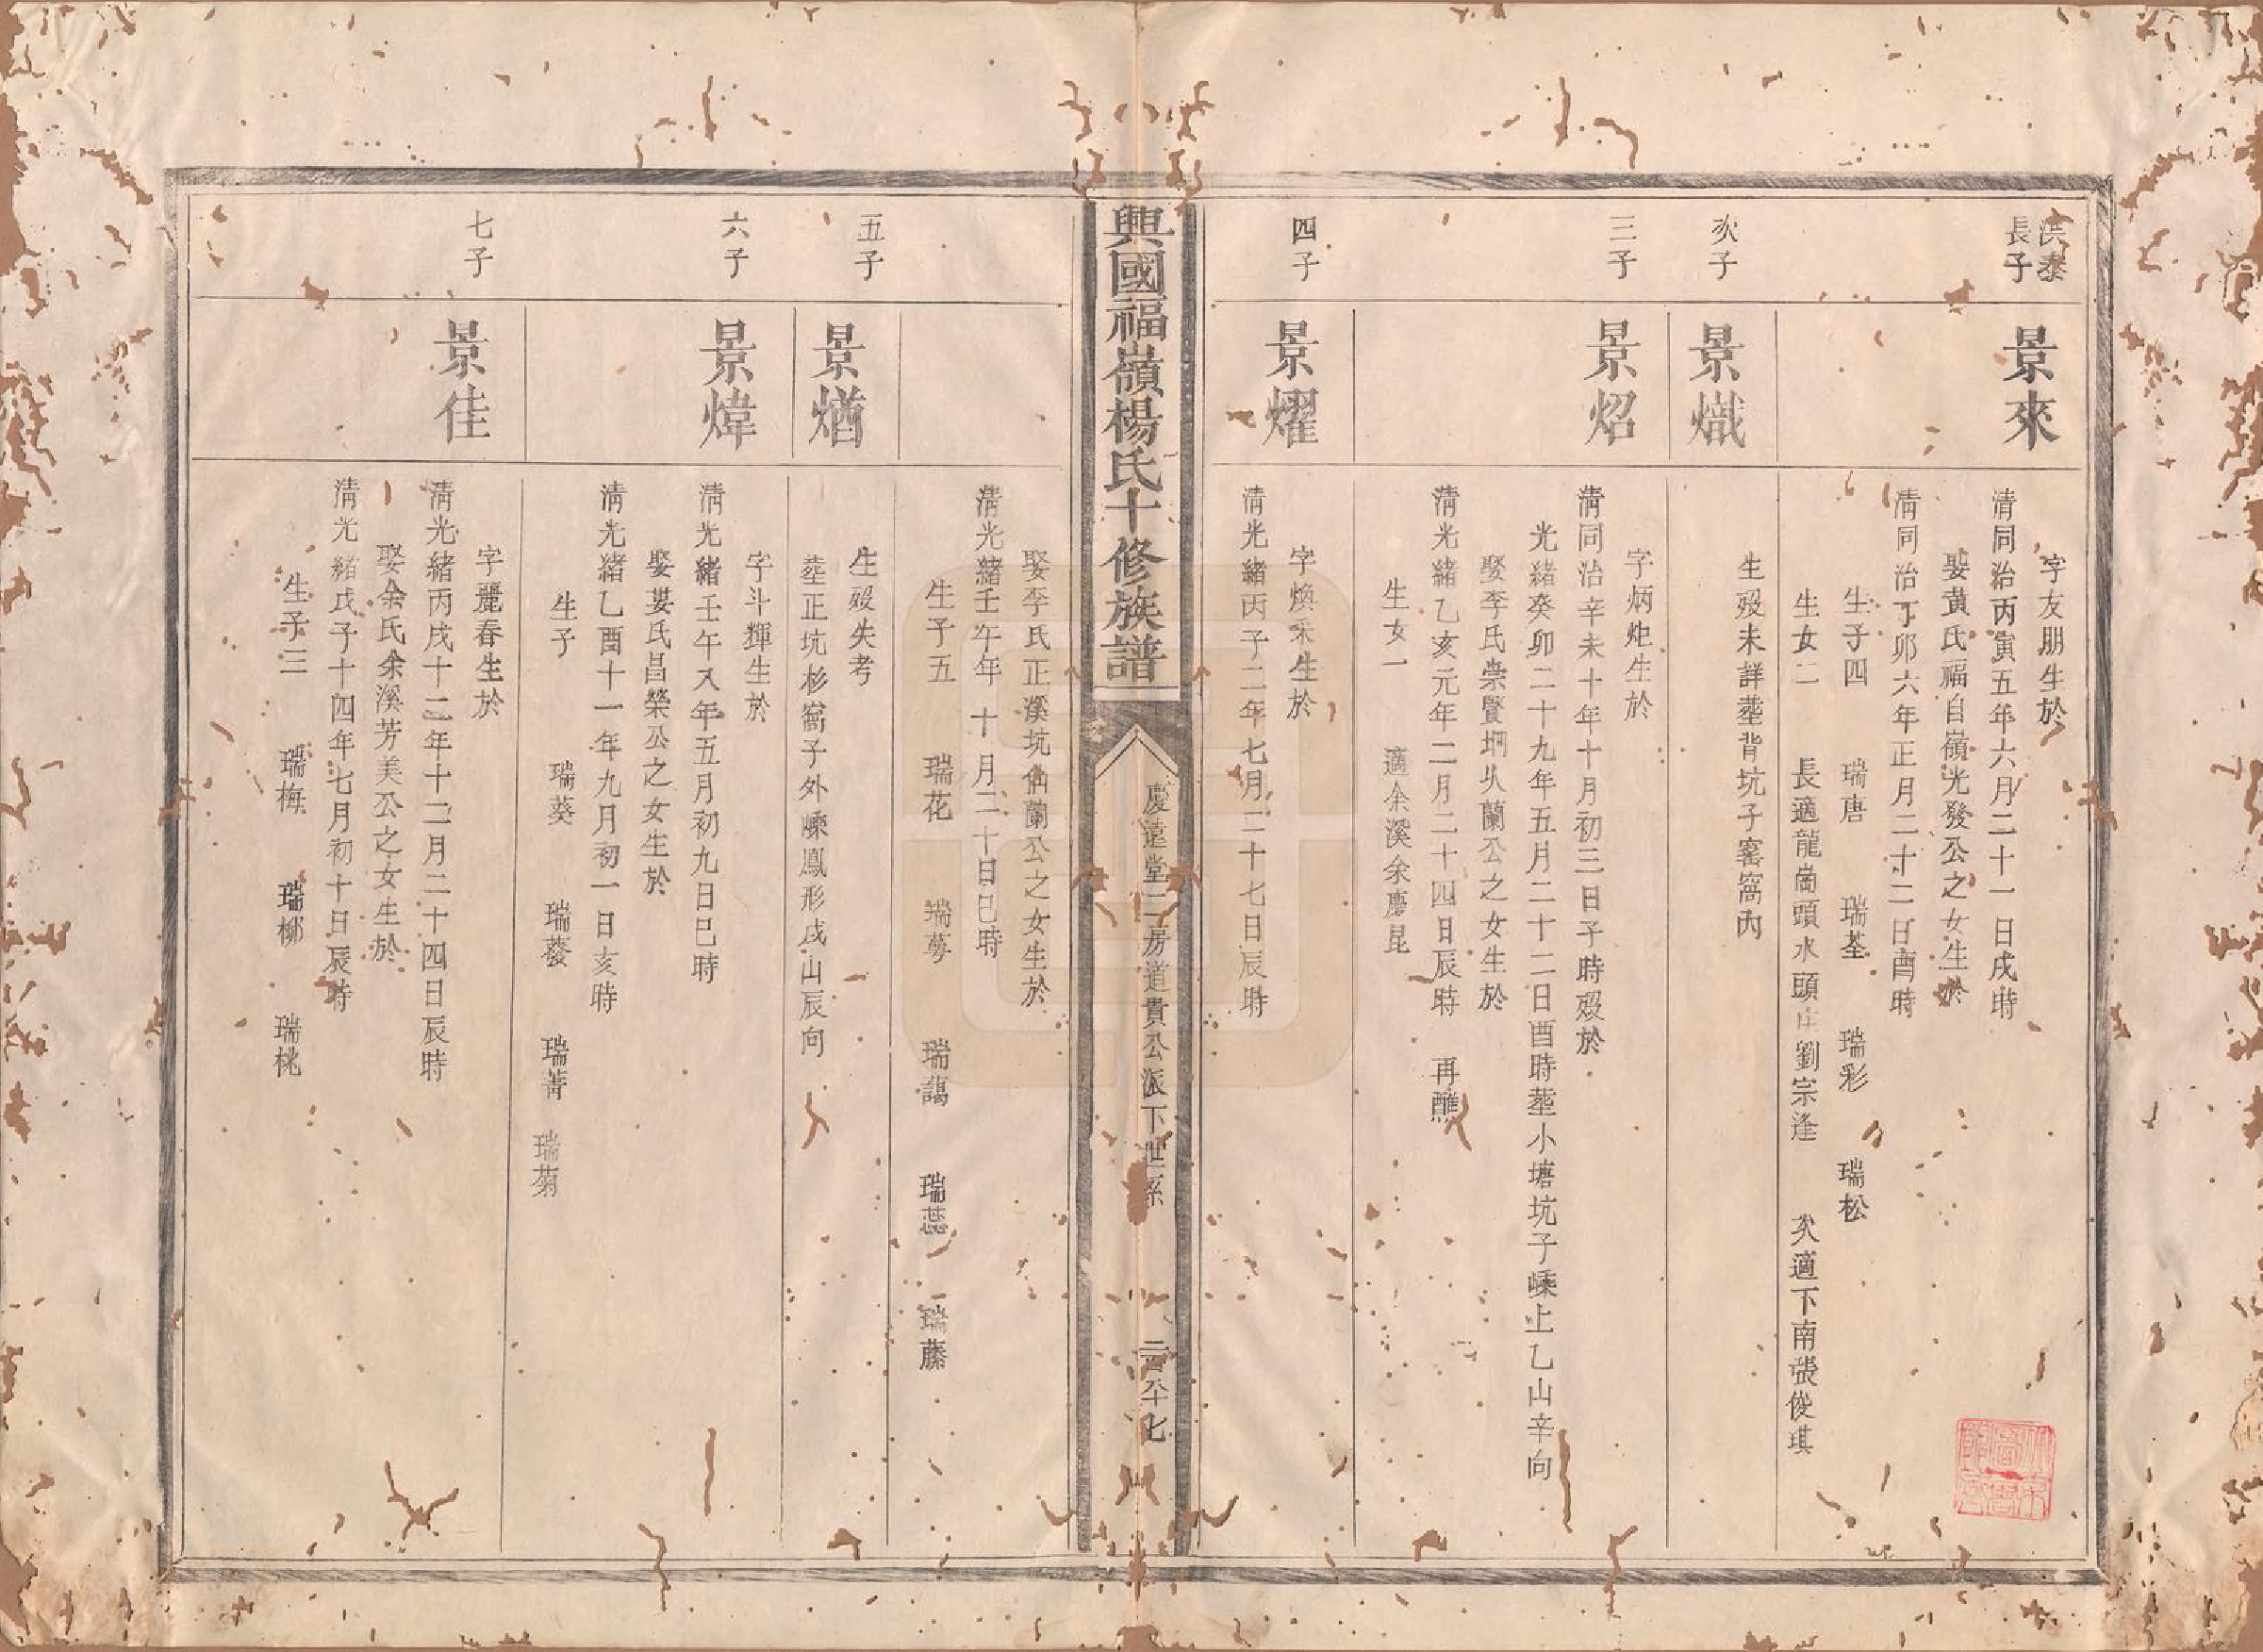 洪泰
長子
景來
字友朋生於
清同治丙寅五年六月二十一日戌時
娶黄氏福自嶺光發公之女生於
清同治丁卯六年正月二十二日酉時
生子四 瑞唐 瑞荃 瑞彩 瑞松
生女二 長適龍崗頭水頭庄劉宗逢 次適下南張俊琪
次子
景熾
生殁未詳塟背坑子窰窩內
三子
景炤
字炳炬生於
清同治辛未十年十月初三日子時殁於
光緒癸卯二十九年五月二十二日酉時塟小塘坑子嵊上乙山辛向
娶李氏崇賢垇乆蘭公之女生於
清光緒乙亥元年二月二十四日辰時 再醮
生女一 適余溪余慶昆
四子
景燿
字煥采生於
清光緒丙子二年七月二十七日辰時
興國福嶺楊氏十修族譜
慶遠堂二房道貴公派下世系
娶李氏正溪坑仙蘭公之女生於
清光緒壬午年十月二十日巳時
生子五 瑞花 瑞蕚 瑞藹 瑞蕊 瑞藤
五子
景煪
生殁失考
塟正坑杉窩子外嵊鳳形戌山辰向
六子
景煒
字斗輝生於
清光緒壬午八年五月初九日巳時
娶婁氏昌榮公之女生於
清光緒乙酉十一年九月初一日亥時
生子 瑞葵 瑞蔆 瑞菁 瑞菊
七子
景佳
字麗春生於
清光緒丙戌十二年十二月二十四日辰時
娶余氏余溪芳美公之女生於
清光緒戊子十四年七月初十日辰時
生子三 瑞梅 瑞柳 瑞桃